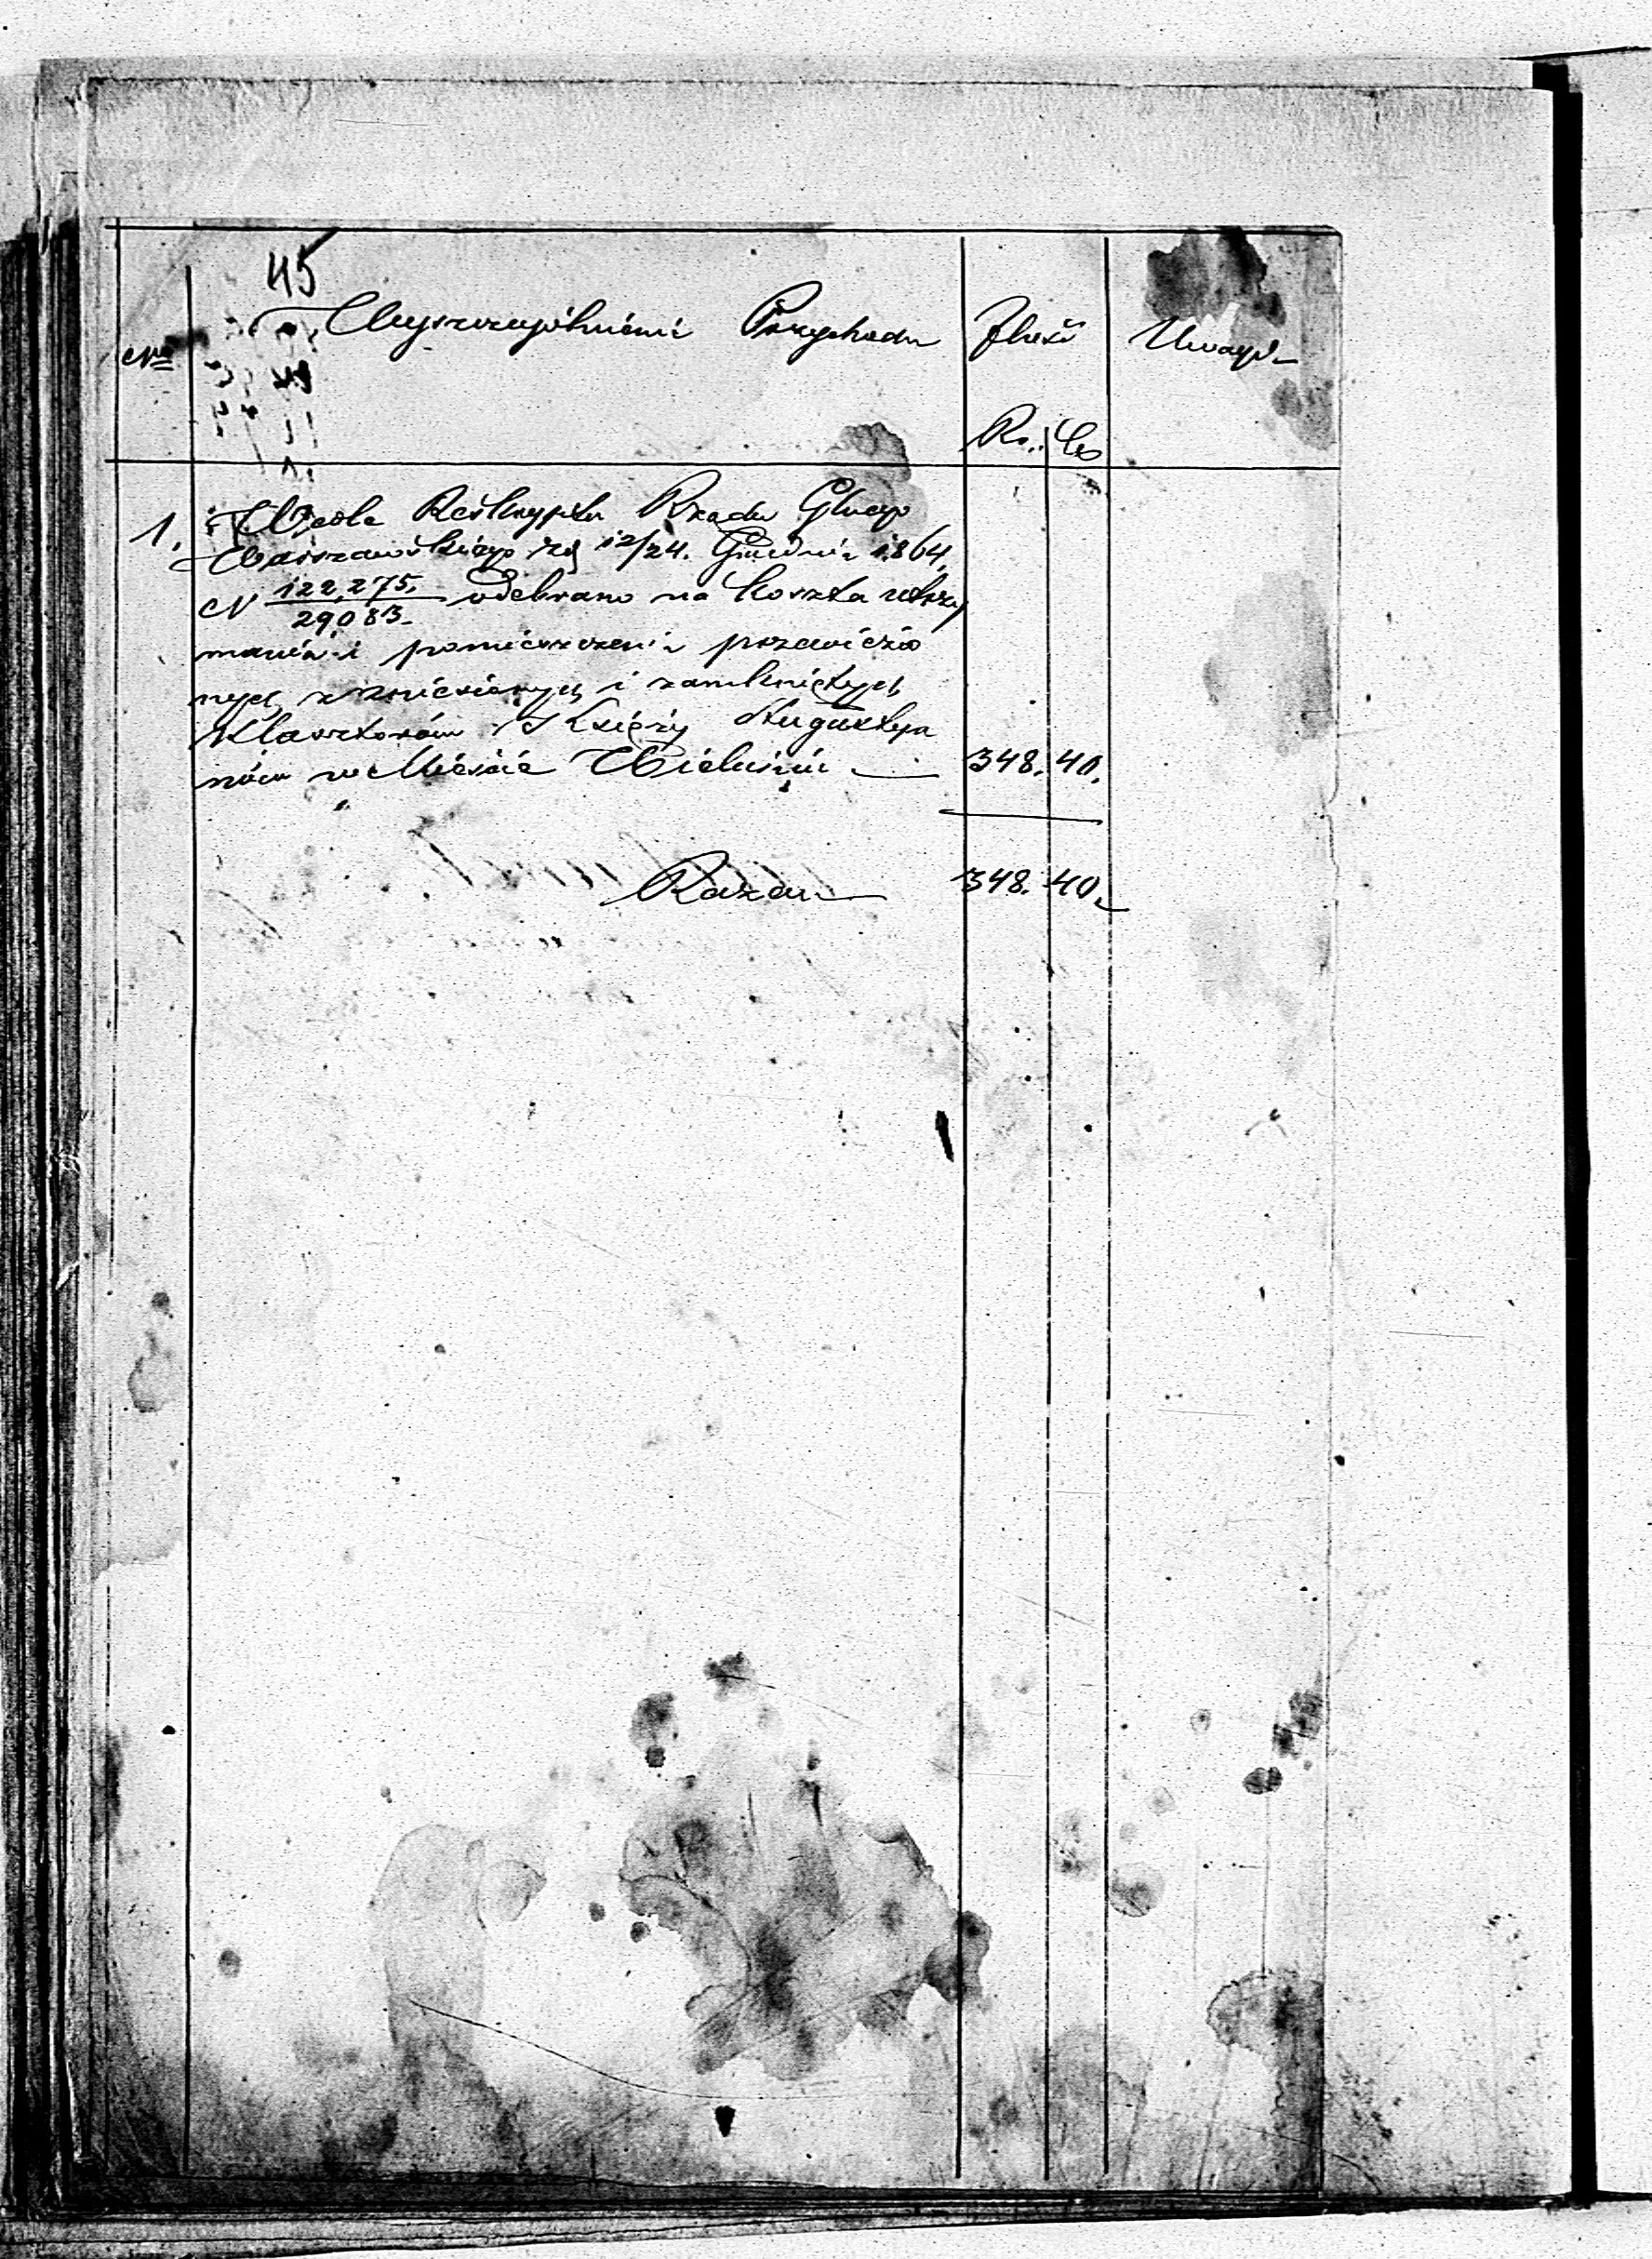 45
Nro Wyszczególnienie Przychodu Ilość Uwagi
Rs. Ko
1. Wedle Reskryptu Rządu Glnego
Warszawskiego z d 12/24. Grudnia 1864,
N 122,275. / 29083 odebrano na koszta utrzy
mania i pomieszczenia przewiezio
nych z zniesionych i zamkniętych
Klasztorów XKsięży Augustya
nów w Mieście Wieluniu 348. 40.
Razem 348. 40.